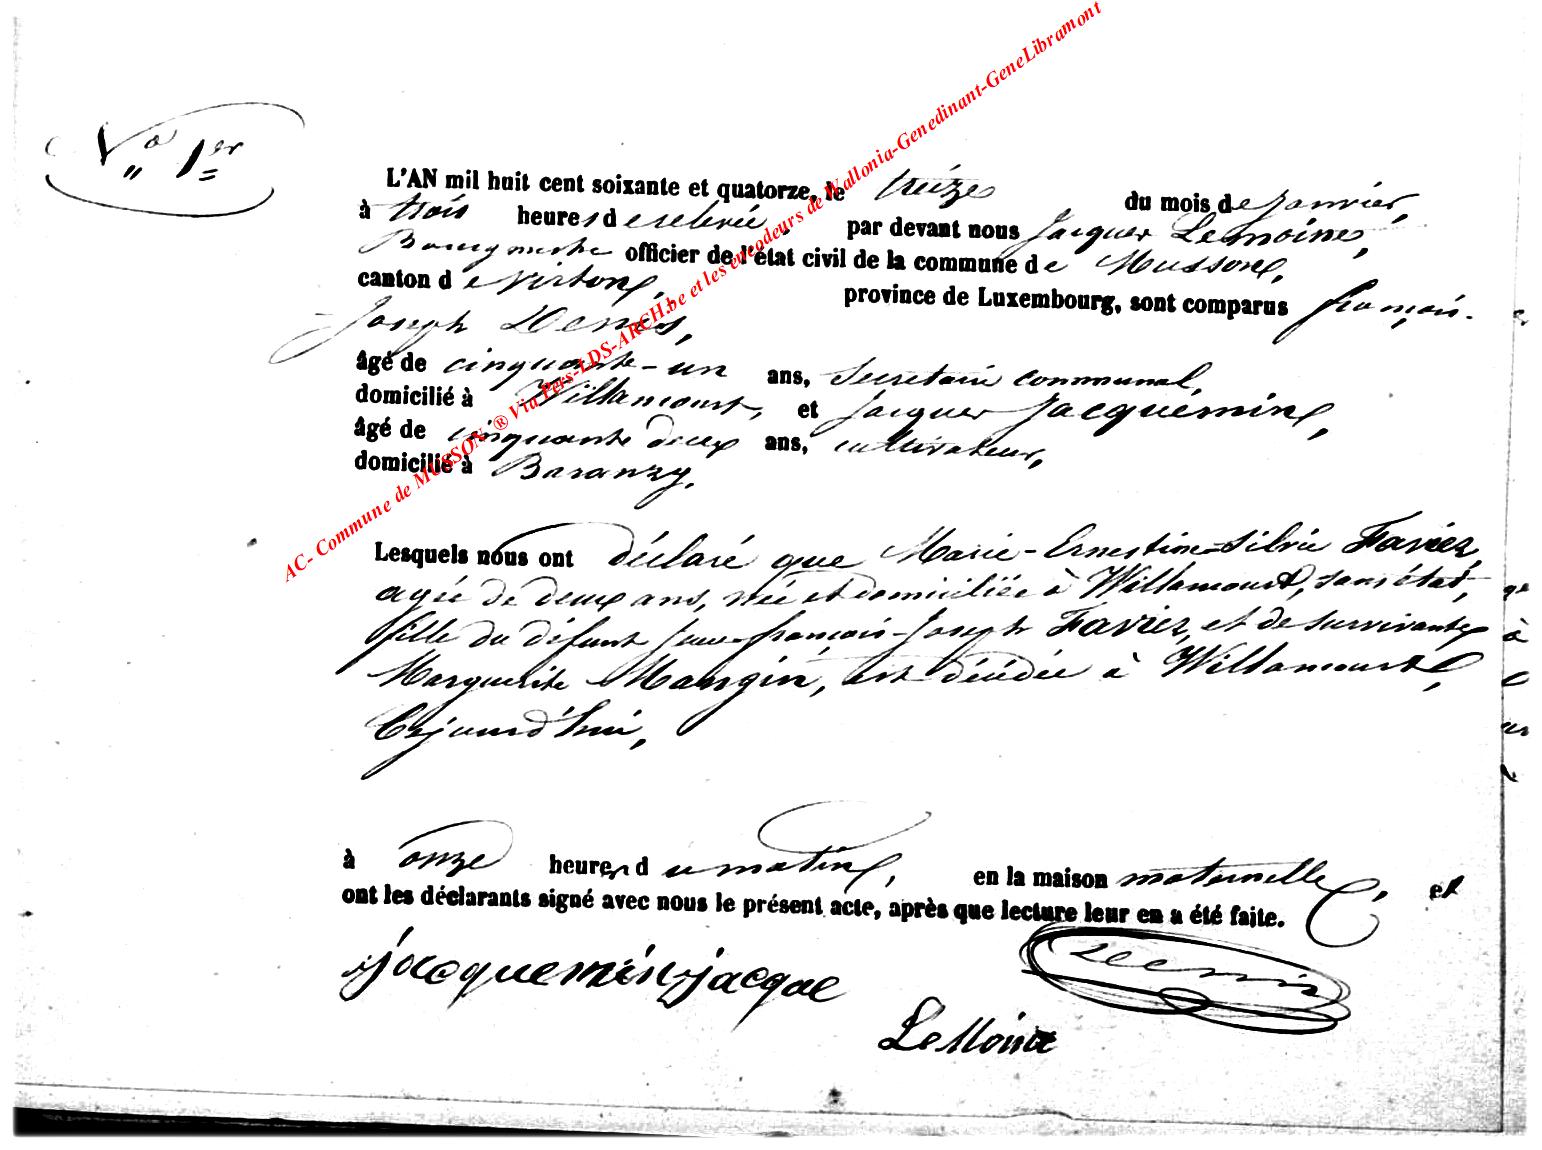 N° 1er
L'AN mil huit cent soixante et quatorze, le treize du mois de janvier,
à trois heures de relevée, par devant nous Jacques Lemoine,
Bourgmestre officier de l'état civil de la commune de Musson,
canton de Virton, province de Luxembourg, sont comparus françois-
Joseph Denis,
âgé de cinquante-un ans, secretaire communal,
domicilié à Willancourt, et Jacques Jacquémin,
âgé de cinquante deux ans, cultivateur,
domicilié à Baranzy.
Lesquels nous ont déclaré que Marie-Ernestine-Silvie Faviez,
agée de deux ans, née et domiciliée à Willancourt, sans état,
fille du défunt Jean-françois-Joseph Faviez, et de survivante
Marguerite Mangin, est décédée à Willancourt,
Cejourd'hui,
à onze heures du matin, en la maison maternelle, et
ont les déclarants signé avec nous le présent acte, après que lecture leur en a été faite.
Jacquemin jacque
Denis
LeMoine
AC- Commune de MUSSON ® Via Pers-LDS-ARCH.be et les encodeurs de Wallonia-Genedinant-GeneLibramont